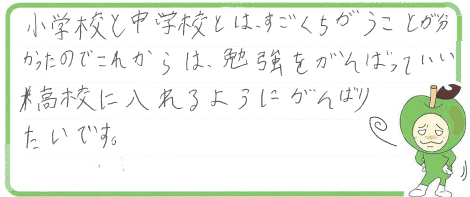 小学校と中学校とは、すごくちがうことが分
かったのでこれからは、勉強をがんばっていい
高校に入れるようにがんばり
たいです。